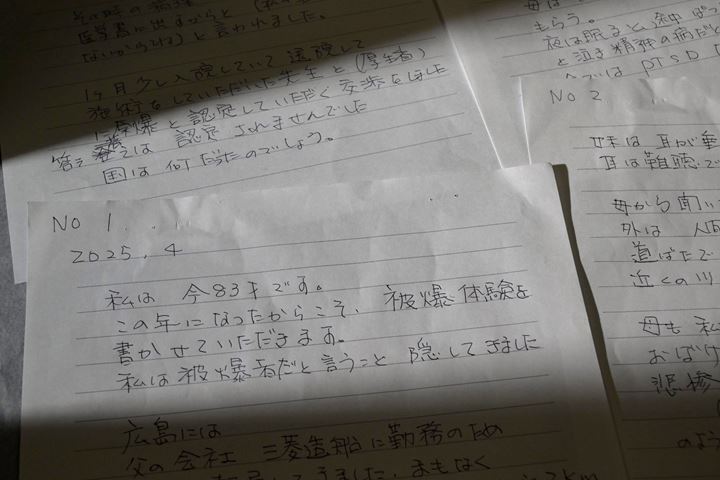 その時の
医学書に出すからと
ないからね)と言われました。
1ヶ月少し入院していて退院して
施術をしていただいた先生と(厚生省)
に原爆と認定していただく交渉をしました
答えは 認定されませんでした
国は何だったのでしょう。
母は
もらう。
夜は眠ると途中
と泣き精神の病だと
PTSD
No 2
妹は耳が垂
耳は難聴で
母から聞い
外は 人間
道ばたで
近くの川
母も私
おばけ
悲惨
のよう
No 1
2025.4
私は 今83才です。
この年になったからこそ、被爆体験を
書かせていただきます。
私は被爆者だと言うこと 隠してきました
広島には
父の会社 三菱造船に勤務のため
転居してきました。まもなく
2km